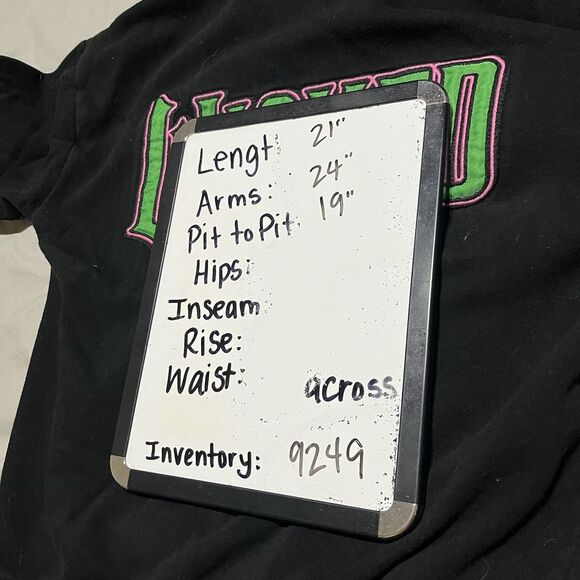 Lengt 21"
Arms: 24"
Pit to Pit 19"
Hips:
Inseam
Rise:
Waist: across
Inventory: 9249